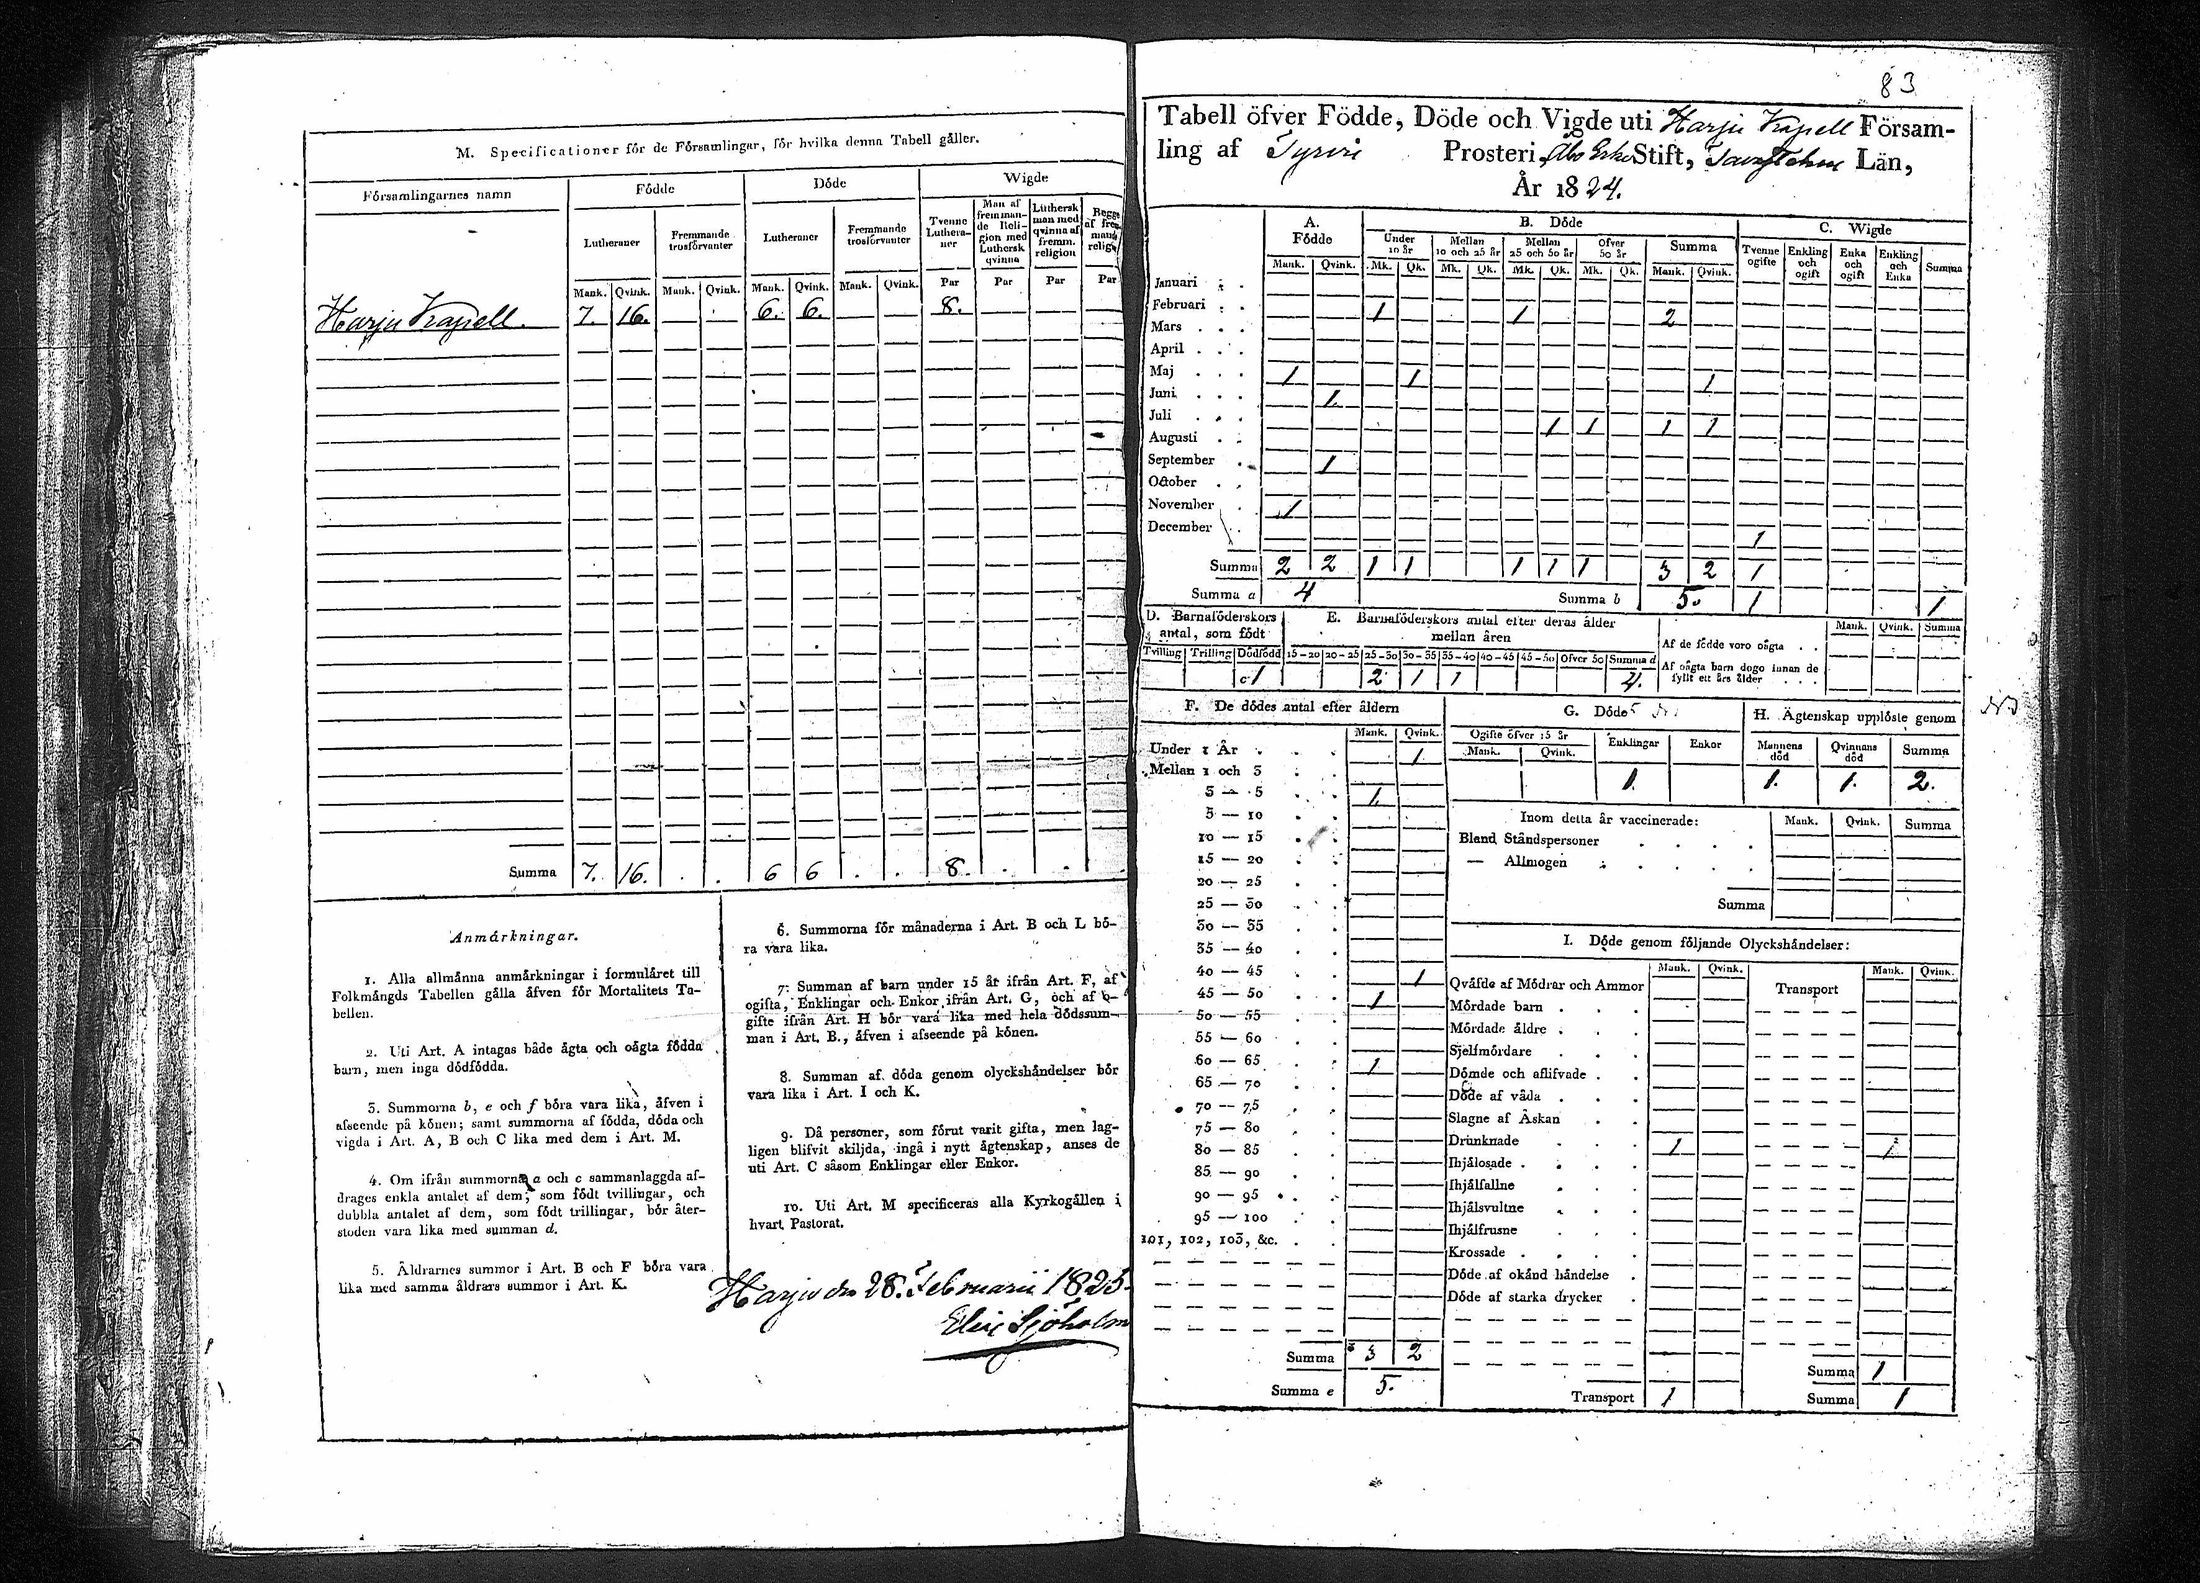 M. Specificationer för de Församlingar, för hvilka denna Tabell gäller.
Församlingarnes namn
Födde
Döde
Wigde
Lutheraner
Fremmande trosförvanter
Lutheraner
Fremmande trosförvanter
Tvenne Lutheraner
Man af fremmande Religion med Luthersk qvinna
Luthersk man med qvinna af fremm. religion
Mank. Qvink. Mank. Qvink. Mank. Qvink. Mank. Qvink. Par Par Par Par
Harju Kapell. 7. 16. 6. 6. 8.
Summa 7. 16. . . 6 6 . . 8. . .
Anmärkningar.
1. Alla allmänna anmärkningar i formuläret till
Folkmängds Tabellen gälla äfven för Mortalitets Ta-
bellen.
2. Uti Art. A intagas både ägta och oägta födda
barn, men inga dödfödda.
3. Summorna b, e och f böra vara lika, äfven i
afseende på könen; samt summorna af födda, döda och
vigda i Art. A, B och C lika med dem i Art. M.
4. Om ifrån summorna a och c sammanlaggda af-
drages enkla antalet af dem, som födt tvillingar, och
dubbla antalet af dem, som födt trillingar, bör åter-
stoden vara lika med summan d.
5. Åldrarnes summor i Art. B och F böra vara
lika med samma åldrars summor i Art. K.
6. Summorna för månaderna i Art. B och L bö-
ra vara lika.
7. Summan af barn under 15 år ifrån Art. F, af
ogifta, Enklingar och Enkor ifrån Art. G, och af
gifte ifrån Art. H bör vara lika med hela dödssum-
man i Art. B., äfven i afseende på könen.
8. Summan af döda genom olyckshändelser bör
vara lika i Art. I och K.
9. Då personer, som förut varit gifta, men lag-
ligen blifvit skiljda, ingå i nytt ägtenskap, anses de
uti Art. C såsom Enklingar eller Enkor.
10. Uti Art. M specificeras alla Kyrkogällen i
hvart Pastorat.
Harju den 28. Februarii 1825.
Eric Sjöholm
83
Tabell öfver Födde, Döde och Vigde uti Harju Kapell Försam-
ling af Tyrvis Prosteri, Åbo Erke Stift, Tavastehus Län,
År 1824.
A. Födde
B. Döde
C. Wigde
Under 10 år
Mellan 10 och 25 år
Mellan 25 och 50 år
Öfver 50 år
Summa
Tvenne ogifte
Enkling och ogift
Enka och ogift
Enkling och Enka
Summa
Mank. Qvink. Mk. Qk. Mk. Qk. Mk. Qk. Mk. Qk. Mank. Qvink.
Januari . .
Februari . . 1 1 2
Mars . . .
April . . .
Maj . . . 1 1 1
Juni . . . 1.
Juli . . .
Augusti . . 1 1 1 1
September . 1
October . .
November . 1
December . 1
Summa 2 2 1 1 1 1 1 3 2 1
Summa a 4 Summa b 5. 1 1
D. Barnaföderskors antal, som födt
E. Barnaföderskors antal efter deras ålder mellan åren
Mank. Qvink. Summa
Tvilling Trilling Dödfödd 15-20 20-25 25-30 30-35 35-40 40-45 45-50 Öfver 50 Summa d
c 1 2 1 1 4.
Af de födde voro oägta . .
Af oägta barn dogo innan de
fyllt ett års ålder . . .
F. De dödes antal efter åldern
Mank. Qvink.
Under 1 År . . . 1
Mellan 1 och 3
3 — 5 . . 1.
5 — 10
10 — 15
15 — 20
20 — 25
25 — 30
30 — 35
35 — 40
40 — 45 . . 1
45 — 50 . . 1
50 — 55
55 — 60
60 — 65 . . 1
65 — 70
70 — 75
75 — 80
80 — 85
85 — 90
90 — 95
95 — 100
101, 102, 103, &c. . .
Summa 3 2
Summa e 5.
G. Döde
Ogifte öfver 15 år
Mank. Qvink.
Enklingar
Enkor
1.
H. Ägtenskap upplöste genom
Mannens död
Qvinnans död
Summa
1. 1. 2.
Inom detta år vaccinerade: Mank. Qvink. Summa
Bland Ståndspersoner . . . .
— Allmogen . . . .
Summa
I. Döde genom följande Olyckshändelser:
Mank. Qvink. Mank. Qvink.
Qväfde af Mödrar och Ammor Transport
Mördade barn . . .
Mördade äldre . . .
Sjelfmördare . . .
Dömde och aflifvade . .
Döde af våda . . .
Slagne af Åskan . .
Drunknade . . . 1 1
Ihjälosade . . . .
Ihjälfallne . . .
Ihjälsvultne . . .
Ihjälfrusne . . .
Krossade . . . .
Döde af okänd händelse .
Döde af starka drycker .
Summa 1
Transport 1 Summa 1